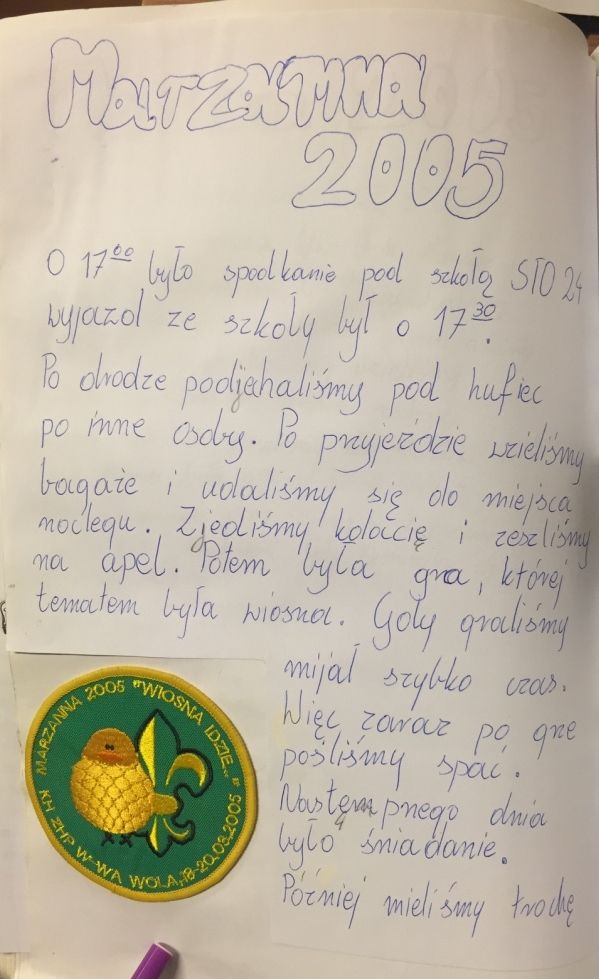 Marzanna
2005
O 17⁰⁰ było spodkanie pod szkołą STO 24
wyjazd ze szkoły był o 17³⁰.
Po drodze podjehaliśmy pod hufiec
po inne osoby. Po przyjeździe wzieliśmy
bagaże i udaliśmy się do miejsca
noclegu. Zjedliśmy kolaccię i zeszliśmy
na apel. Potem była gra, której
tematem była wiosna. Gdy graliśmy
mijał szybko czas.
Więc zaraz po grze
pośliśmy spać.
Następnego dnia
było śniadanie.
Później mieliśmy trochę
MARZANNA 2005 "WIOSNA IDZIE..."
KH ZHP W-WA WOLA, 18-20.03.2005